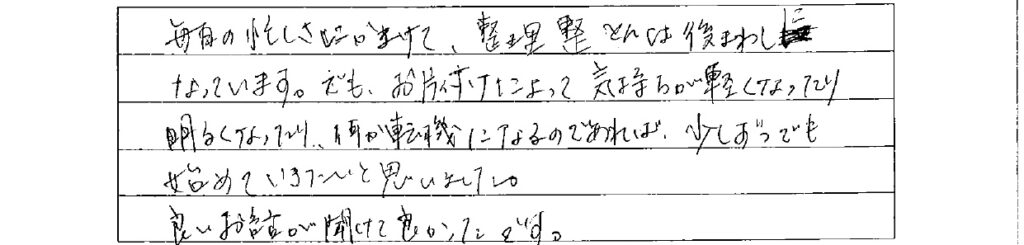 毎日の忙しさにかまけて、整理整とんは後まわしに
なっています。でも、お片付けによって気持ちが軽くなったり
明るくなったり、何か転機になるのであれば、少しずつでも
始めていきたいと思いました。
良いお話が聞けて良かったです。